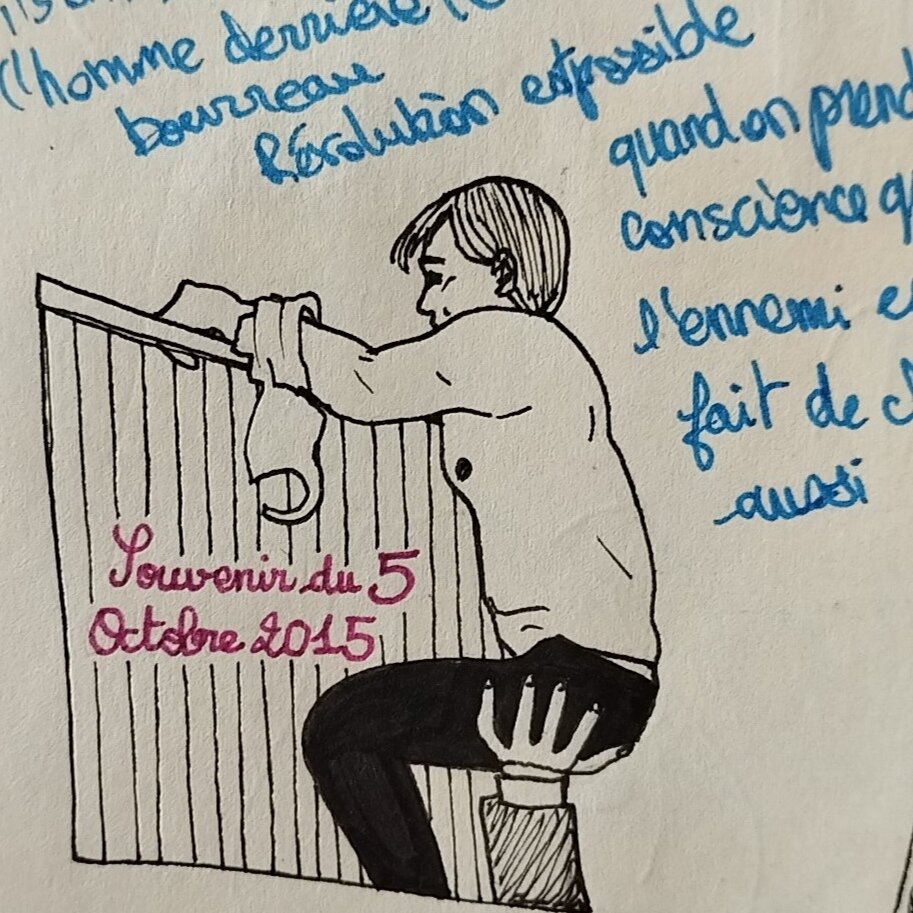 l'homme derrière
bourreau
Révolution est possible
quand on prend
conscience
l'ennemi
fait de
aussi
Souvenir du 5
Octobre 2015